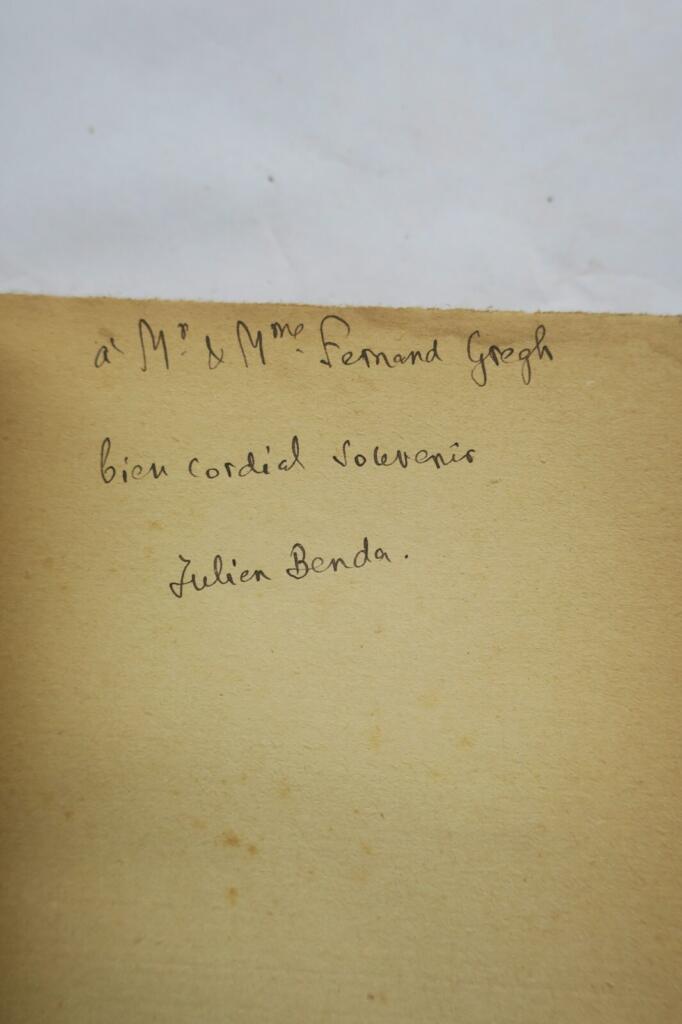 à Mr. & Mme. Fernand Gregh
bien cordial souvenir
Julien Benda.